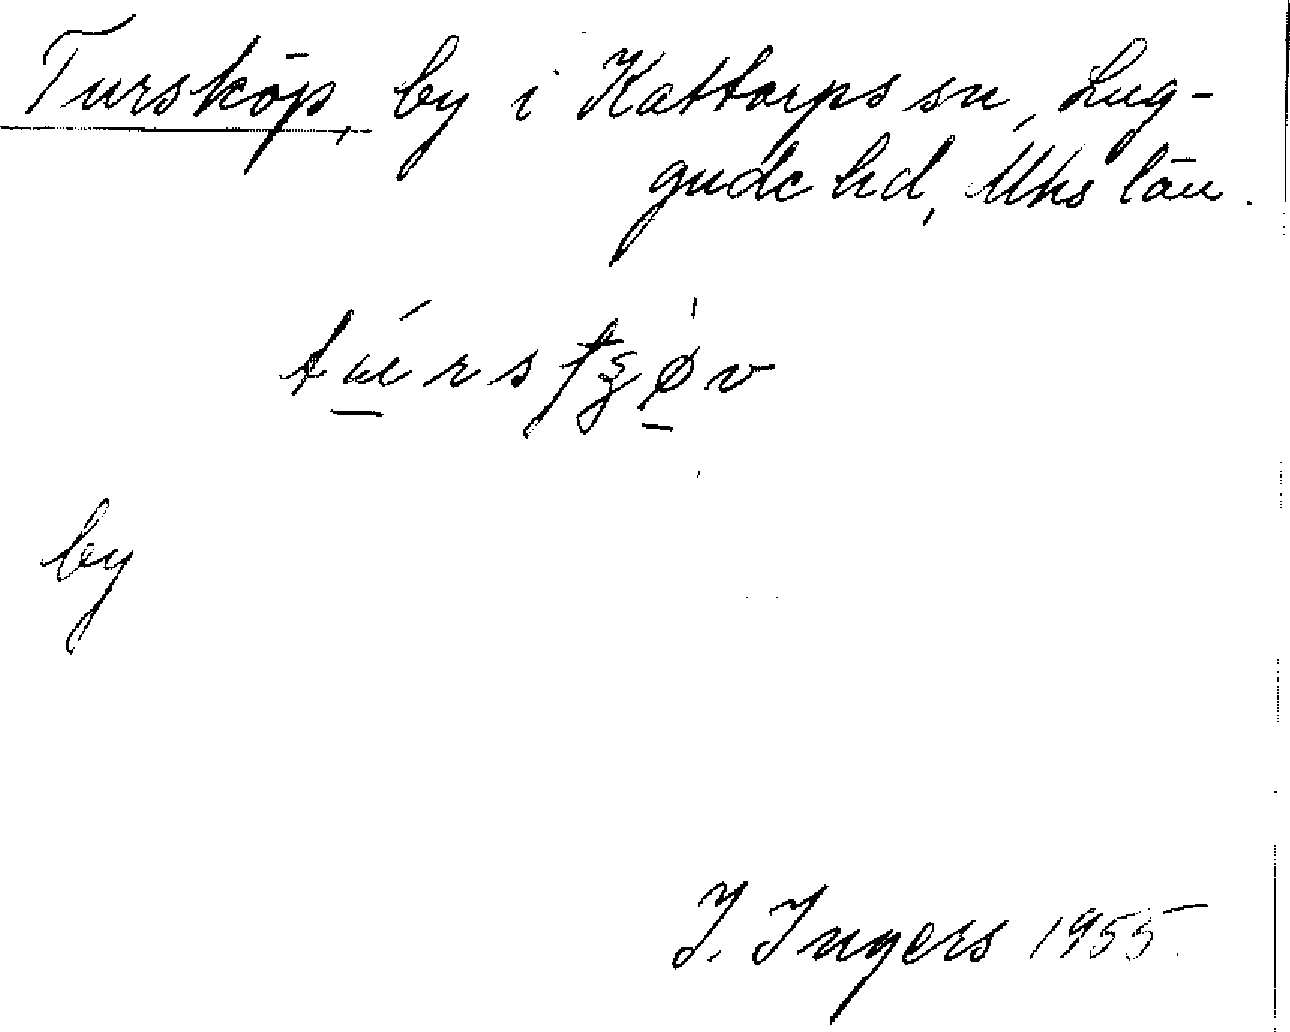 Tursköp, by i Kattarps sn, Lug-
gude hd, Mhs län.
by
I. Ingers 1955.